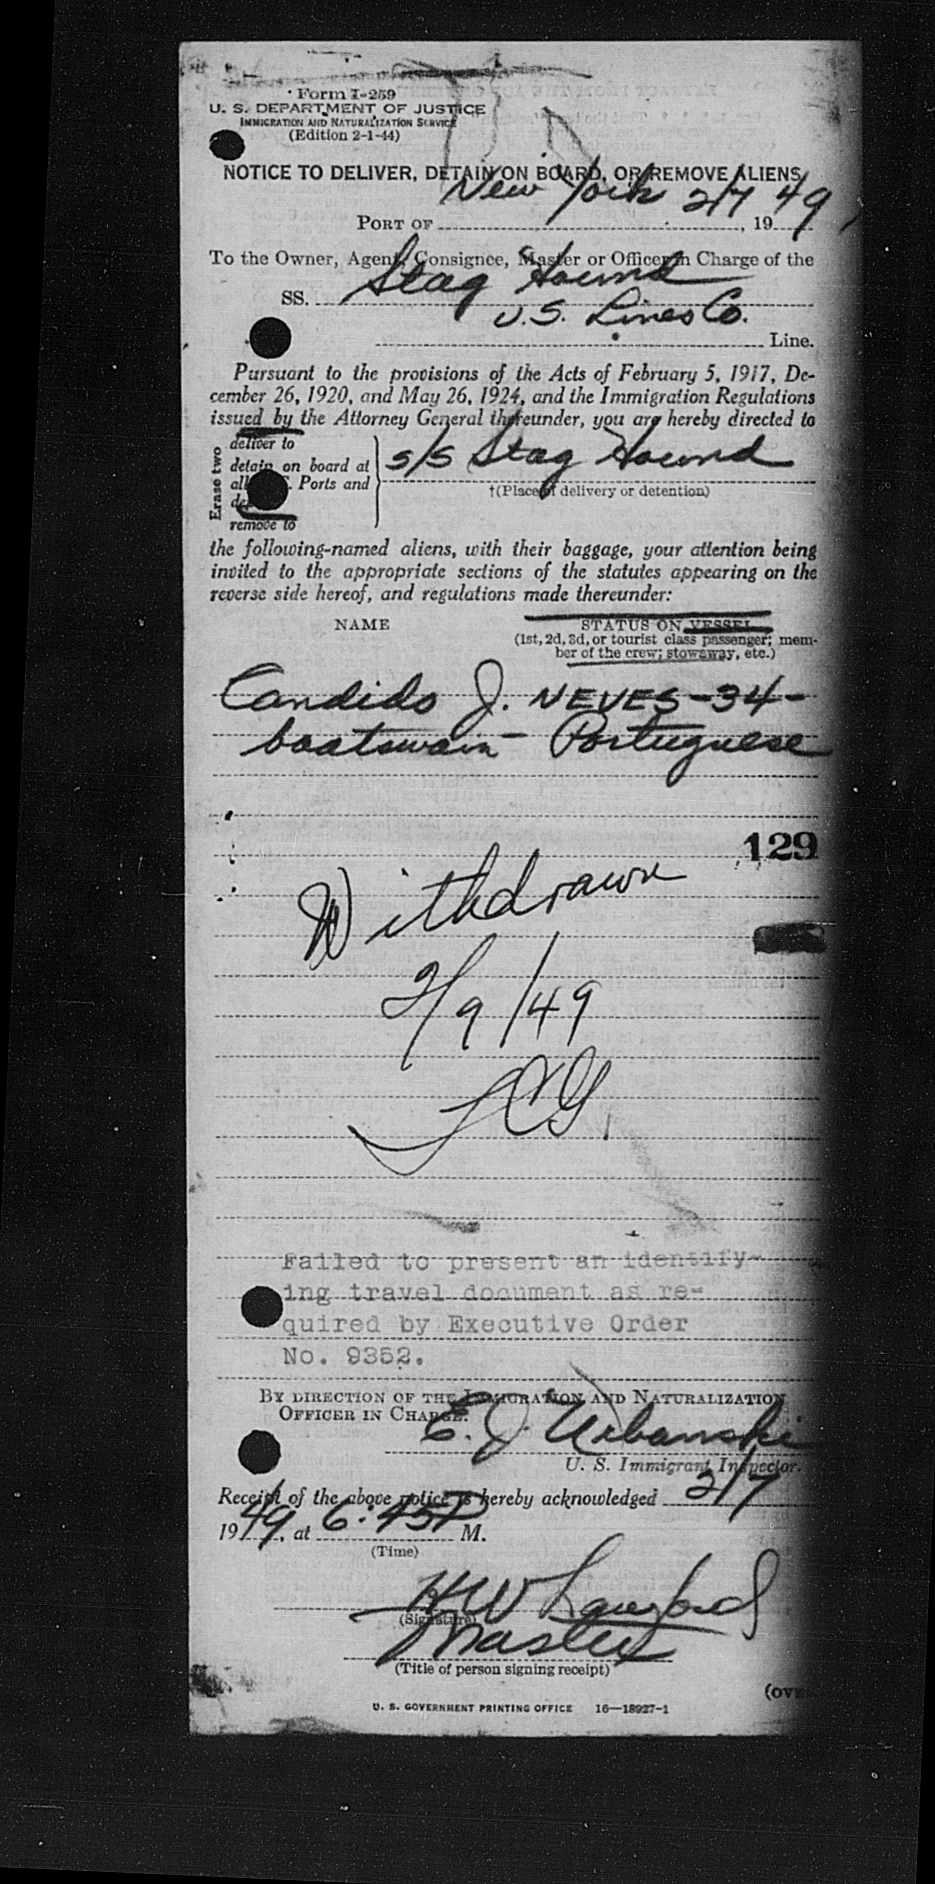 Form I-259
U. S. DEPARTMENT OF JUSTICE
IMMIGRATION AND NATURALIZATION SERVICE
(Edition 2-1-44)
NOTICE TO DELIVER, DETAIN ON BOARD, OR REMOVE ALIENS
PORT OF New York 2/7, 1949
To the Owner, Agent, Consignee, Master or Officer in Charge of the
SS. Stag Hound
U.S. Lines Co. Line.
Pursuant to the provisions of the Acts of February 5, 1917, De-
cember 26, 1920, and May 26, 1924, and the Immigration Regulations
issued by the Attorney General thereunder, you are hereby directed to
Erase two
deliver to
detain on board at
all Ports and
remove to
s/s Stag Hound
†(Place of delivery or detention)
the following-named aliens, with their baggage, your attention being
invited to the appropriate sections of the statutes appearing on the
reverse side hereof, and regulations made thereunder:
NAME STATUS ON VESSEL
(1st, 2d, 3d, or tourist class passenger; mem-
ber of the crew; stowaway, etc.)
Candido J. NEVES-34-
boatswain- Portuguese
129
Withdrawn
2/9/49
Failed to present an identify-
ing travel document as re-
quired by Executive Order
No. 9352.
BY DIRECTION OF THE IMMIGRATION AND NATURALIZATION
OFFICER IN CHARGE:
E. J. Urbanski
U. S. Immigrant Inspector.
Receipt of the above notice is hereby acknowledged 2/7
1949, at 6:45P M.
(Time)
HW
(Signature)
Master
(Title of person signing receipt)
(OVE
U. S. GOVERNMENT PRINTING OFFICE 16—18927-1